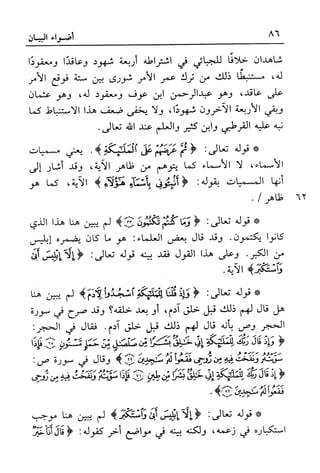 ٨٦ أضواء البيان
شاهدان خلافًا للجبائي في اشتراطه أربعة شهود وعاقدًا ومعقودًا
له، مستنبطًا ذلك من ترك عمر الأمر شورى بين ستة فوقع الأمر
على عاقد، وهو عبدالرحمن ابن عوف ومعقود له، وهو عثمان
وبقي الأربعة الآخرون شهودًا، ولا يخفى ضعف هذا الاستنباط كما
نبه عليه القرطبي وابن كثير والعلم عند الله تعالى.
* قوله تعالى: ﴿ ثُمَّ عَرَضَهُمْ عَلَى الْمَلَٰٓئِكَةِ ﴾. يعني مسميات
الأسماء، لا الأسماء كما يتوهم من ظاهر الآية، وقد أشار إلى
أنها المسميات بقوله: ﴿ أَنۢبِـُٔونِى بِأَسْمَآءِ هَٰٓؤُلَآءِ ﴾ الآية، كما هو
ظاهر /. ٦٢
* قوله تعالى: ﴿ وَمَا كُنتُمْ تَكْتُمُونَ ﴿٣٣﴾ ﴾ لم يبين هنا هذا الذي
كانوا يكتمون. وقد قال بعض العلماء: هو ما كان يضمره إبليس
من الكبر. وعلى هذا القول فقد بينه قوله تعالى: ﴿ إِلَّآ إِبْلِيسَ أَبَىٰ
وَٱسْتَكْبَرَ ﴾ الآية.
* قوله تعالى: ﴿ وَإِذْ قُلْنَا لِلْمَلَٰٓئِكَةِ ٱسْجُدُوا۟ لِـَٔادَمَ ﴾ لم يبين هنا
هل قال لهم ذلك قبل خلق آدم، أو بعد خلقه؟ وقد صرح في سورة
الحجر وص بأنه قال لهم ذلك قبل خلق آدم. فقال في الحجر:
﴿ وَإِذْ قَالَ رَبُّكَ لِلْمَلَٰٓئِكَةِ إِنِّى خَٰلِقٌۢ بَشَرًا مِّن صَلْصَٰلٍ مِّنْ حَمَإٍ مَّسْنُونٍ ﴿٢٨﴾ فَإِذَا
سَوَّيْتُهُۥ وَنَفَخْتُ فِيهِ مِن رُّوحِى فَقَعُوا۟ لَهُۥ سَٰجِدِينَ ﴿٢٩﴾ ﴾ وقال في سورة ص:
﴿ إِذْ قَالَ رَبُّكَ لِلْمَلَٰٓئِكَةِ إِنِّى خَٰلِقٌۢ بَشَرًا مِّن طِينٍ ﴿٧١﴾ فَإِذَا سَوَّيْتُهُۥ وَنَفَخْتُ فِيهِ مِن رُّوحِى
فَقَعُوا۟ لَهُۥ سَٰجِدِينَ ﴿٧٢﴾ ﴾.
* قوله تعالى: ﴿ إِلَّآ إِبْلِيسَ أَبَىٰ وَٱسْتَكْبَرَ ﴾ لم يبين هنا موجب
استكباره في زعمه، ولكنه بينه في مواضع أخر كقوله: ﴿ قَالَ أَنَا۠ خَيْرٌ